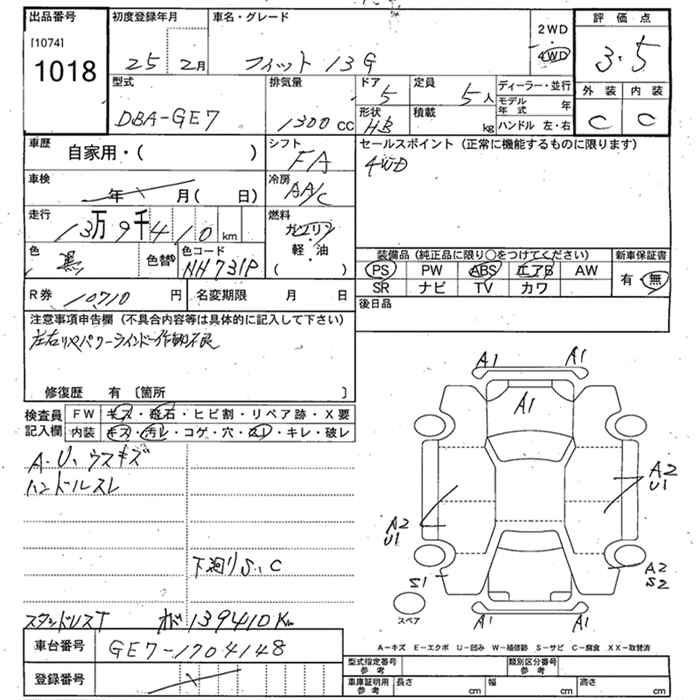 出品番号
[1074]
1018
初度登録年月
25 2月
車名・グレード
フィット 13G
2WD
4WD
評価点
3.5
外装 内装
C C
型式
DBA-GE7
排気量
1300 CC
ドア
5
形状
HB
定員
5人
積載
kg
ディーラー・並行
モデル年式 年
ハンドル 左・右
車歴 自家用・( )
シフト
FA
セールスポイント (正常に機能するものに限ります)
4WD
車検 年 月( 日)
冷房
AA/C
走行 13万9千410km
燃料
ガソリン
軽・油
( )
色 黒 色替
色コード
NH731P
装備品 (純正品に限り○をつけてください)
PS PW ABS エアB AW
SR ナビ TV カワ
新車保証書
有・無
R券 10710 円 名変期限 月 日
後日品
注意事項申告欄 (不具合内容等は具体的に記入して下さい)
左右リヤパワーウインドー作動不良
修復歴 有 〔箇所 〕
検査員記入欄
FW キズ・飛石・ヒビ割・リペア跡・X要
内装 キズ・汚レ・コゲ・穴・スレ・キレ・破レ
A・U、ウスキズ
ハンドルスレ
下廻りS、C
スタッドレスT
139410Km
A1
A1
A1
A2
U1
A2
U1
S1
A2
S2
A1
A1
スペア
A-キズ E-エクボ U-凹み W-補修跡 S-サビ C-腐食 XX-取替済
車台番号 GE7-1704148
登録番号
型式指定番号
参考
類別区分番号
参考
車庫証明用
参考
長さ cm 幅 cm 高さ cm